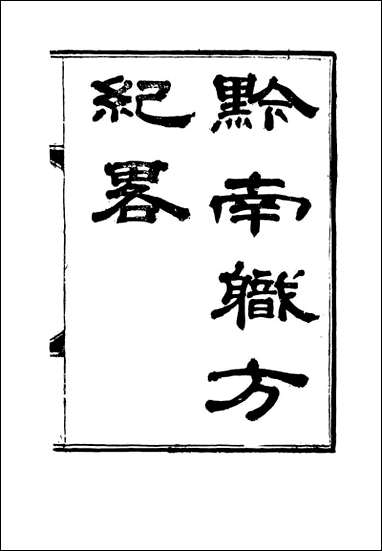 黔南職方
紀畧